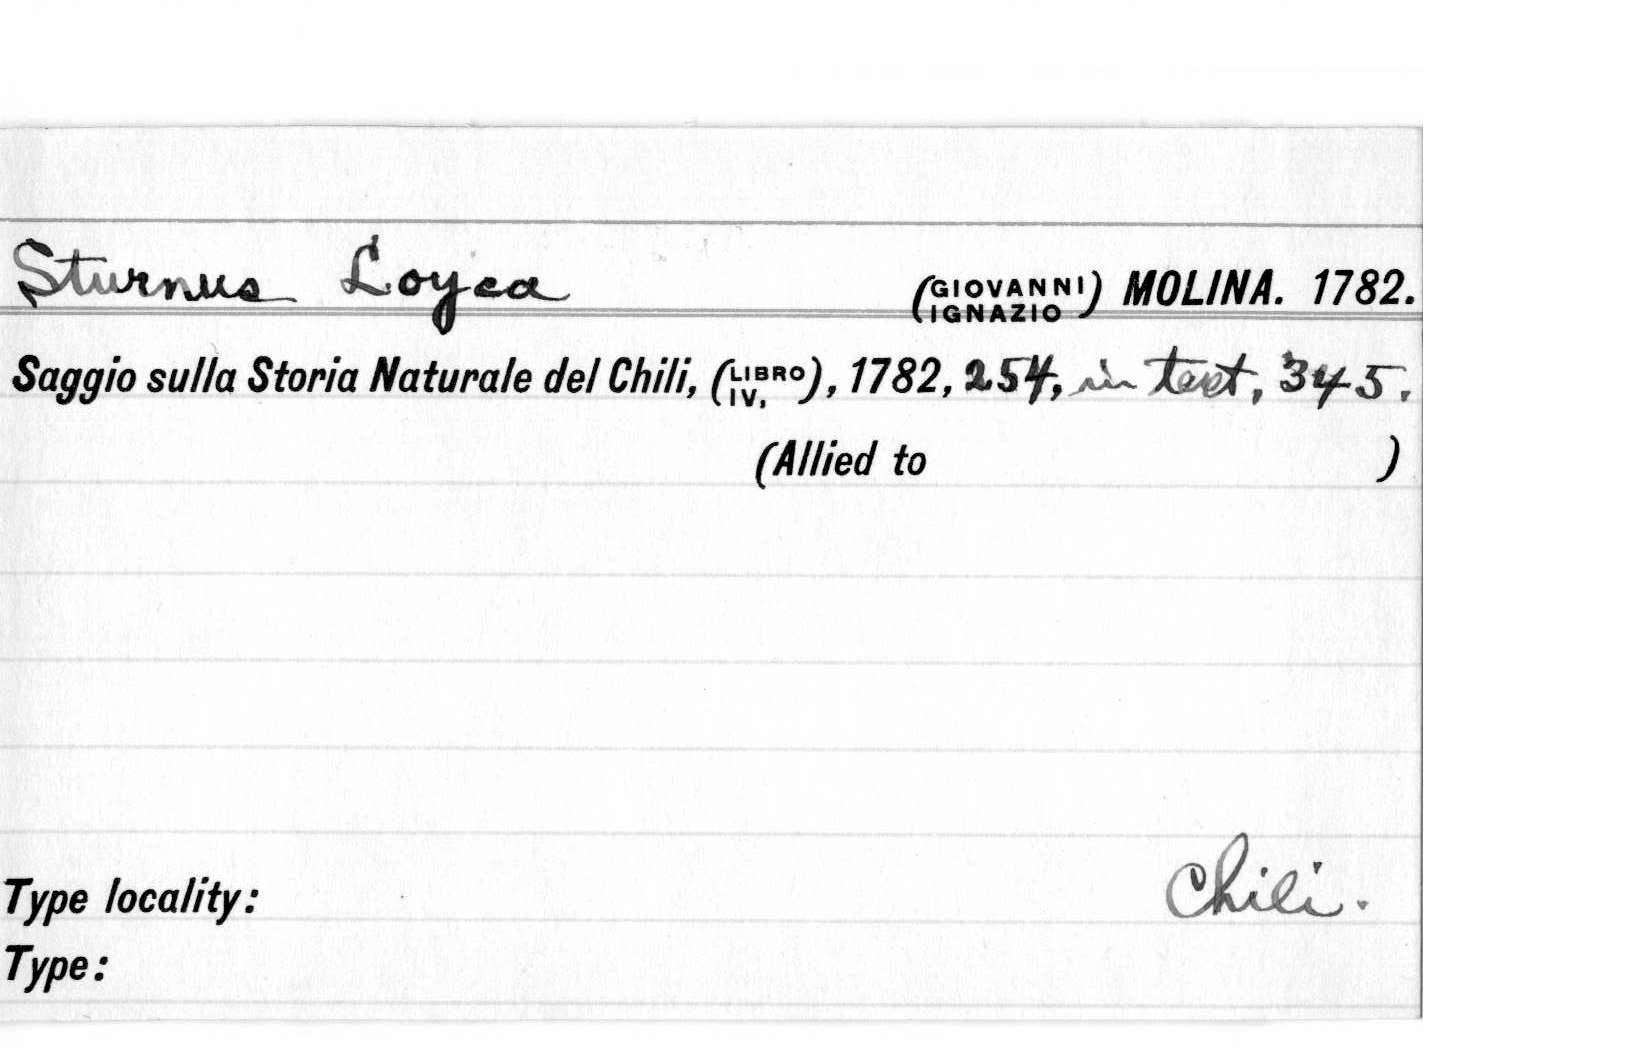 Sturnus Loyca (GIOVANNI IGNAZIO) MOLINA. 1782.
Saggio sulla Storia Naturale del Chili, (LIBRO IV,), 1782, 254, in text, 345.
(Allied to )
Type locality: Chili.
Type: